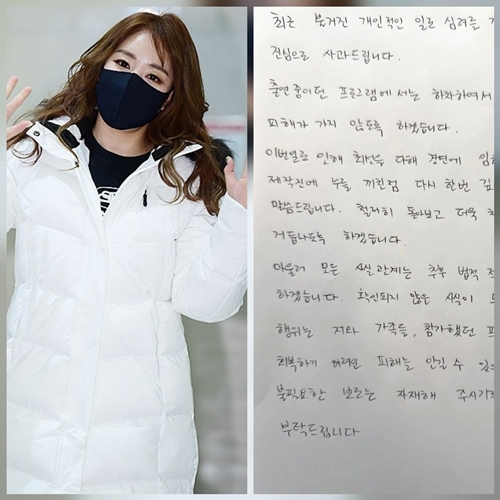 최근 불거진 개인적인 일로 심려를
진심으로 사과드립니다.
출연 중이던 프로그램에서는 하차하여서
피해가 가지 않도록 하겠습니다.
이번일로 인해 최선을 다해 경연에
제작진에 누를 끼친점 다시 한번
말씀드립니다. 철저히 돌아보고 더욱
거듭나도록 하겠습니다.
아울러 모든 사실관계는 추후 법적
하겠습니다. 확인되지 않은 사실이
행위는 저와 가족들, 참가했던
회복하기 어려운 피해를 안길 수
불필요한 보도는 자제해 주시기
부탁드립니다